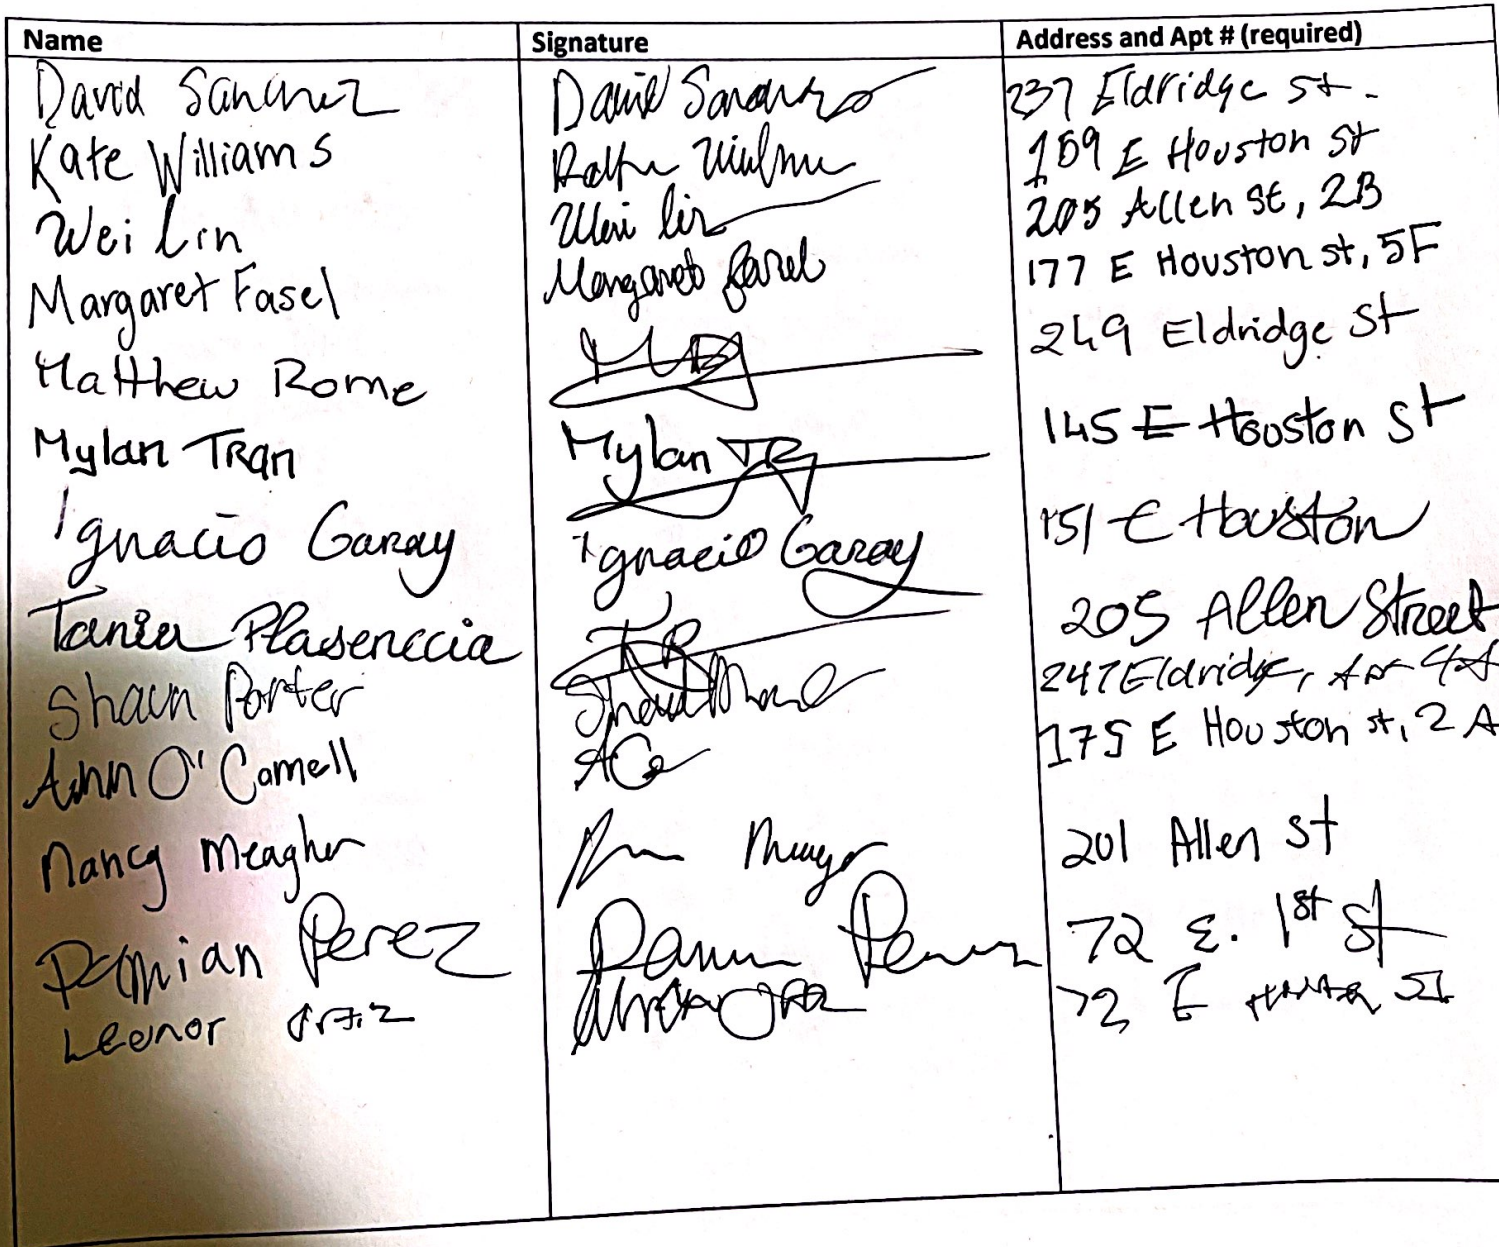 Name Signature Address and Apt # (required)
David Sanchez David 237 Eldridge St.
Kate Williams 159 E Houston St
Wei Lin Wei Lin 205 Allen St, 2B
Margaret Fasel Margaret Fasel 177 E Houston St, 5F
Matthew Rome 249 Eldridge St
Mylan Tran Mylan TR 145 E Houston St
Ignacio Garay Ignacio Garay 151 E Houston
Tania Plasenccia TP 205 Allen Street
Shaun Porter Shaun 247 Eldridge,
Ann O'Connell 175 E Houston st, 2A
Nancy Meagher 201 Allen St
Damian Perez 72 E. 1st St
Leonor Ortiz 72 E